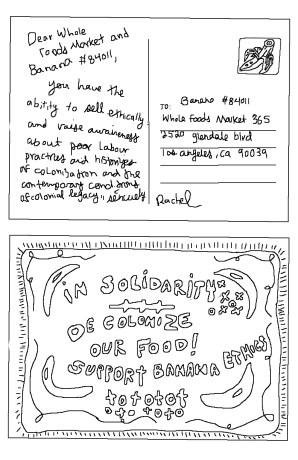 Dear Whole
Foods Market and
Banana #84011,
You have the
ability to sell ethically
and raise awareness
about poor labour
practices and histories
of colonization and the
contemporary conditions
of colonial legacy. sincerely
Rachel
TO: Banana #84011
Whole Foods Market 365
2520 glendale blvd
Los angeles, ca 90039
iN SOLiDARiTY
DECOLONiZE
OUR FOOD!
SUPPORT BANANA ETHICS